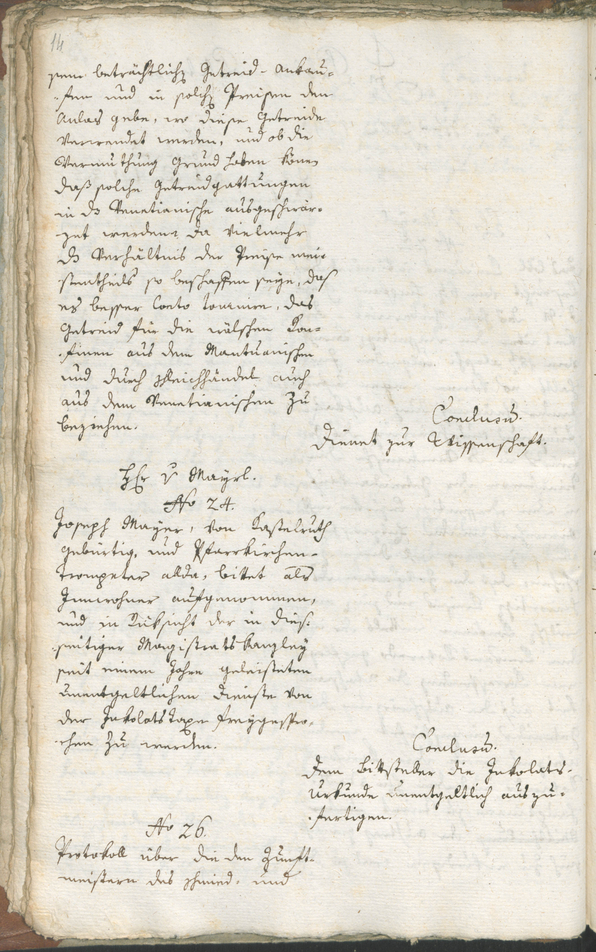 14
sem beträchtlichen Getreid-Ankau-
fen und in solchen Preisen den
Anlas gebe, wo diese Getreide
verwendet werden, und ob die
Vermuthung Grund haben könen
daß solche Getreidgattungen
in ds Venetianische ausgeschwär-
zet werden; da vielmehr
ds Verhältnis der Preise mei-
stentheils so beschaffen seye, das
es besser Conto tournire, das
Getreid für die wälschen Kon-
finen aus dem Mantuanischen
und durch Schleichhandel auch
aus dem Venetianischen zu
beziehen.
Conclusum.
Dienet zur Wissenschaft.
Hr v Mayrl.
No 24.
Joseph Mayer, von Kastelruth
gebürtig, und Pfarrkirchen-
trompeter allda, bittet als
Innwohner aufgenommen,
und in Rüksicht der in dies-
seitiger Magistratskanzley
seit einem Jahre geleisteten
unentgeltlichen Dienste von
der Inkolats Taxe freygespro-
chen zu werden.
Conclusum.
Dem Bittsteller die Inkolats-
Urkunde unentgeltlich auszu-
fertigen.
No 26.
Protokoll über die den Zunft-
meistern des Schmied- und